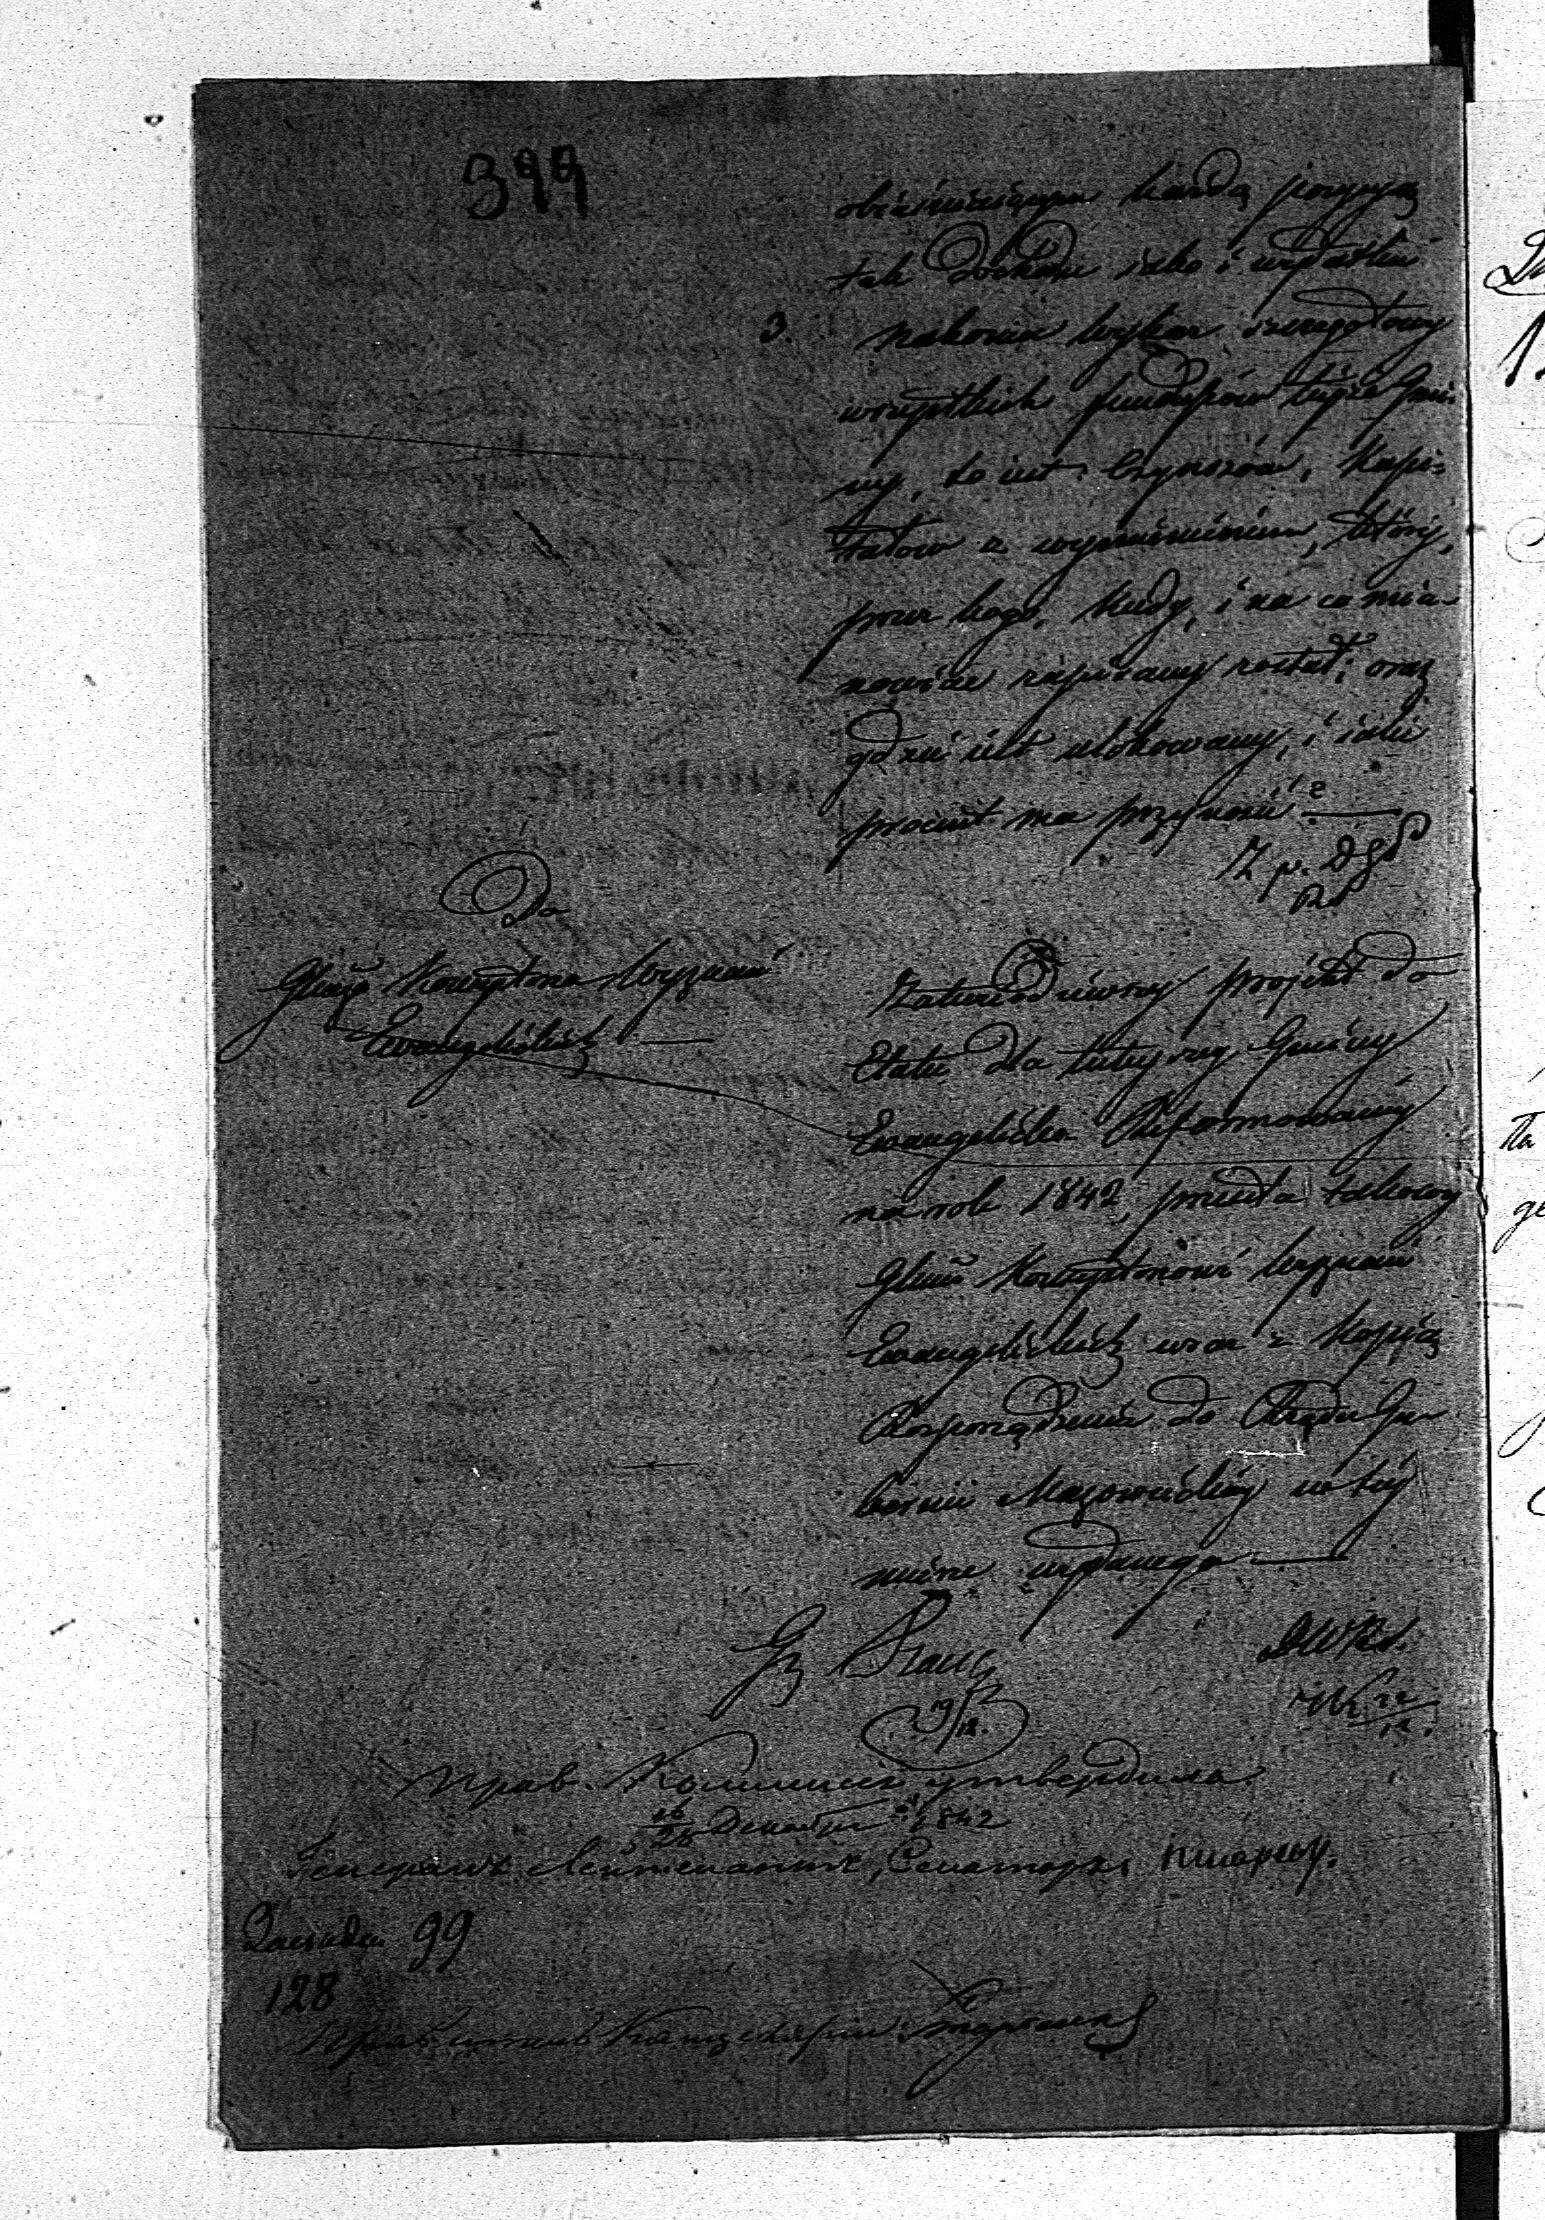 399
obiaśniaiącym każdą pozycyą
tak dochodu iako i wydatku
3. nakoniec wykaz szczegółowy
wszystkich funduszów tejże Gmi-
ny, to iest: Czynszów, Kapi-
tałów z wymienieniem, który,
przez kogo, kiedy, i na co mia-
nowicie zapisany został; oraz
gdzie iest ulokowany, i iakie
procent ma przynosić?
Do
Konsystorza Wyznań
Ewangelickich
Zatwierdzony projekt do
Etatu dla tutejszej Gminy
Ewangelicko Reformowanej
na rok 1842, przesyła takowy
Konsystorzowi Wyznań
Ewangelickich wraz z Kopią
Rozporządzenia do Rządu Gu-
bernii Mazowieckiej w tej
mierze wydanego
19/12.
22/12.
Прав. Коммисія утвердила
16/28 Декабря 1842
Генералъ Лейтенантъ, Сенаторъ,
99
128
Правитель Канцеляріи